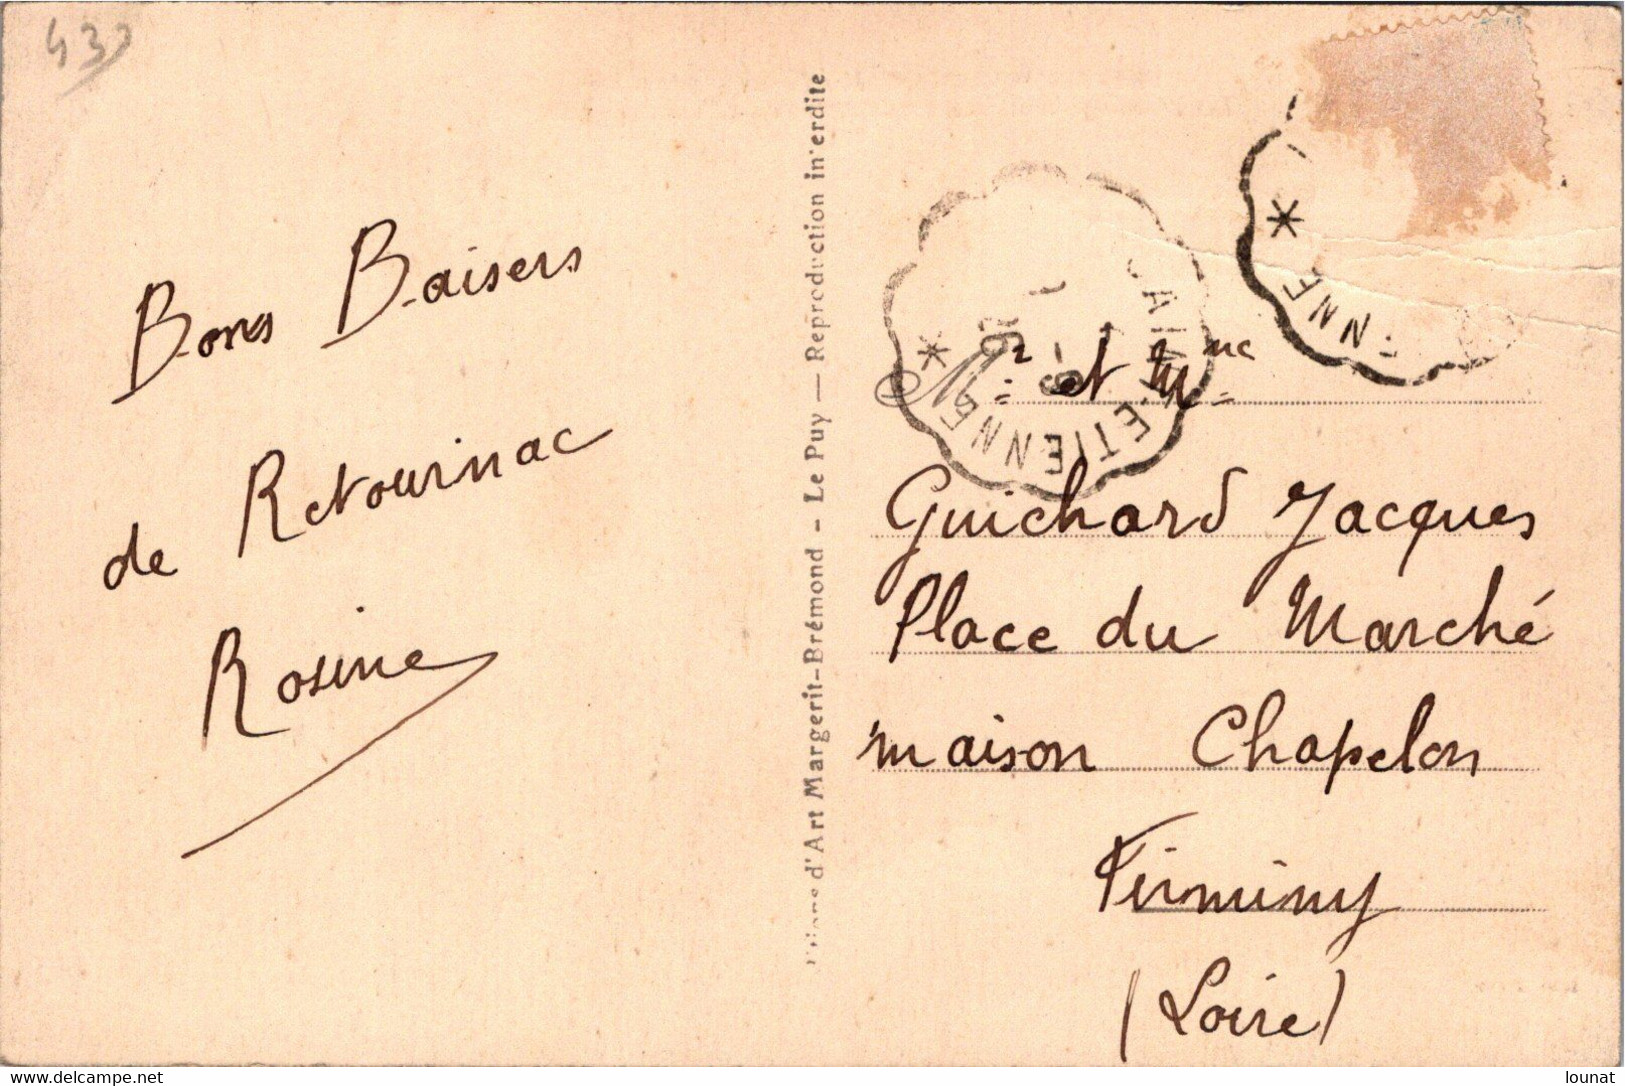 433
Bons Baisers
de Retournac
Rosine
d'Art Margerit-Brémond - Le Puy — Reproduction interdite
SAINT-ETIENNE
et Mme
Guichard Jacques
Place du Marché
maison Chapelon
Firminy
(Loire)
www.delcampe.net
lounat